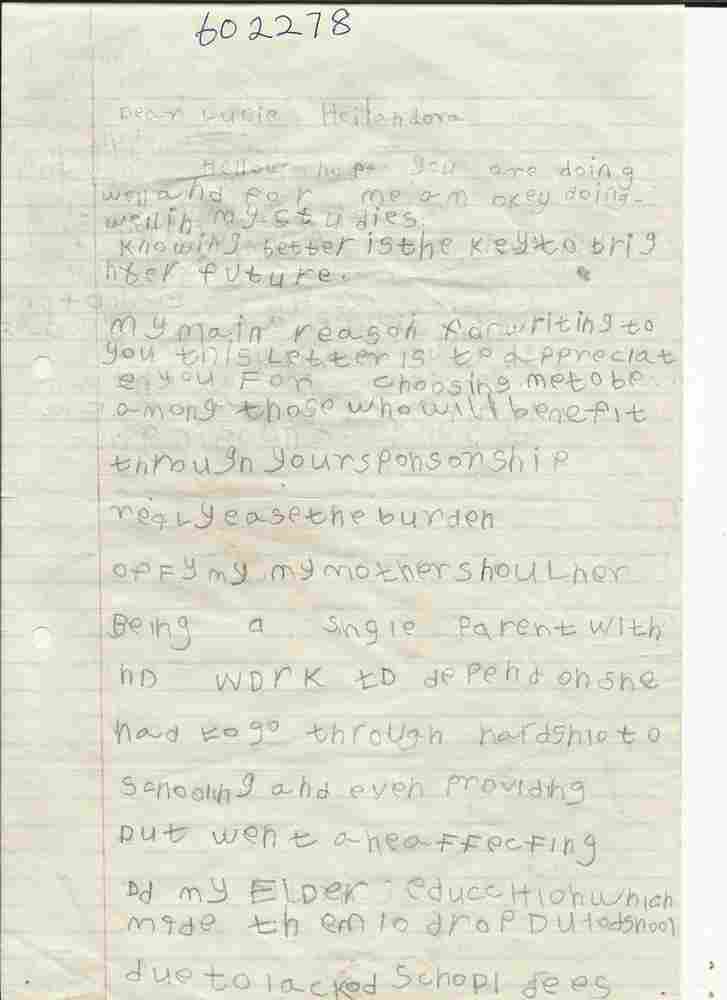 602278
Dear Lucie Heitendorа
Hellow hope you are doing
well and for me am okey doing
well in my studies.
Knowing better is the key to brig
hter future.
My main reason for writing to
you this Letter is to appreciat
e you For choosing me to be
among those who will benefit
through your sponsorship
realy ease the burden
opFy my my mother shoulher
Being a sngle Parent with
no work to depend on she
had to go through hardship to
schooling and even providing
out went ahea FFecFing
Dd my ELDER educcHion which
made them to drop out odshool
due to lacked School fees